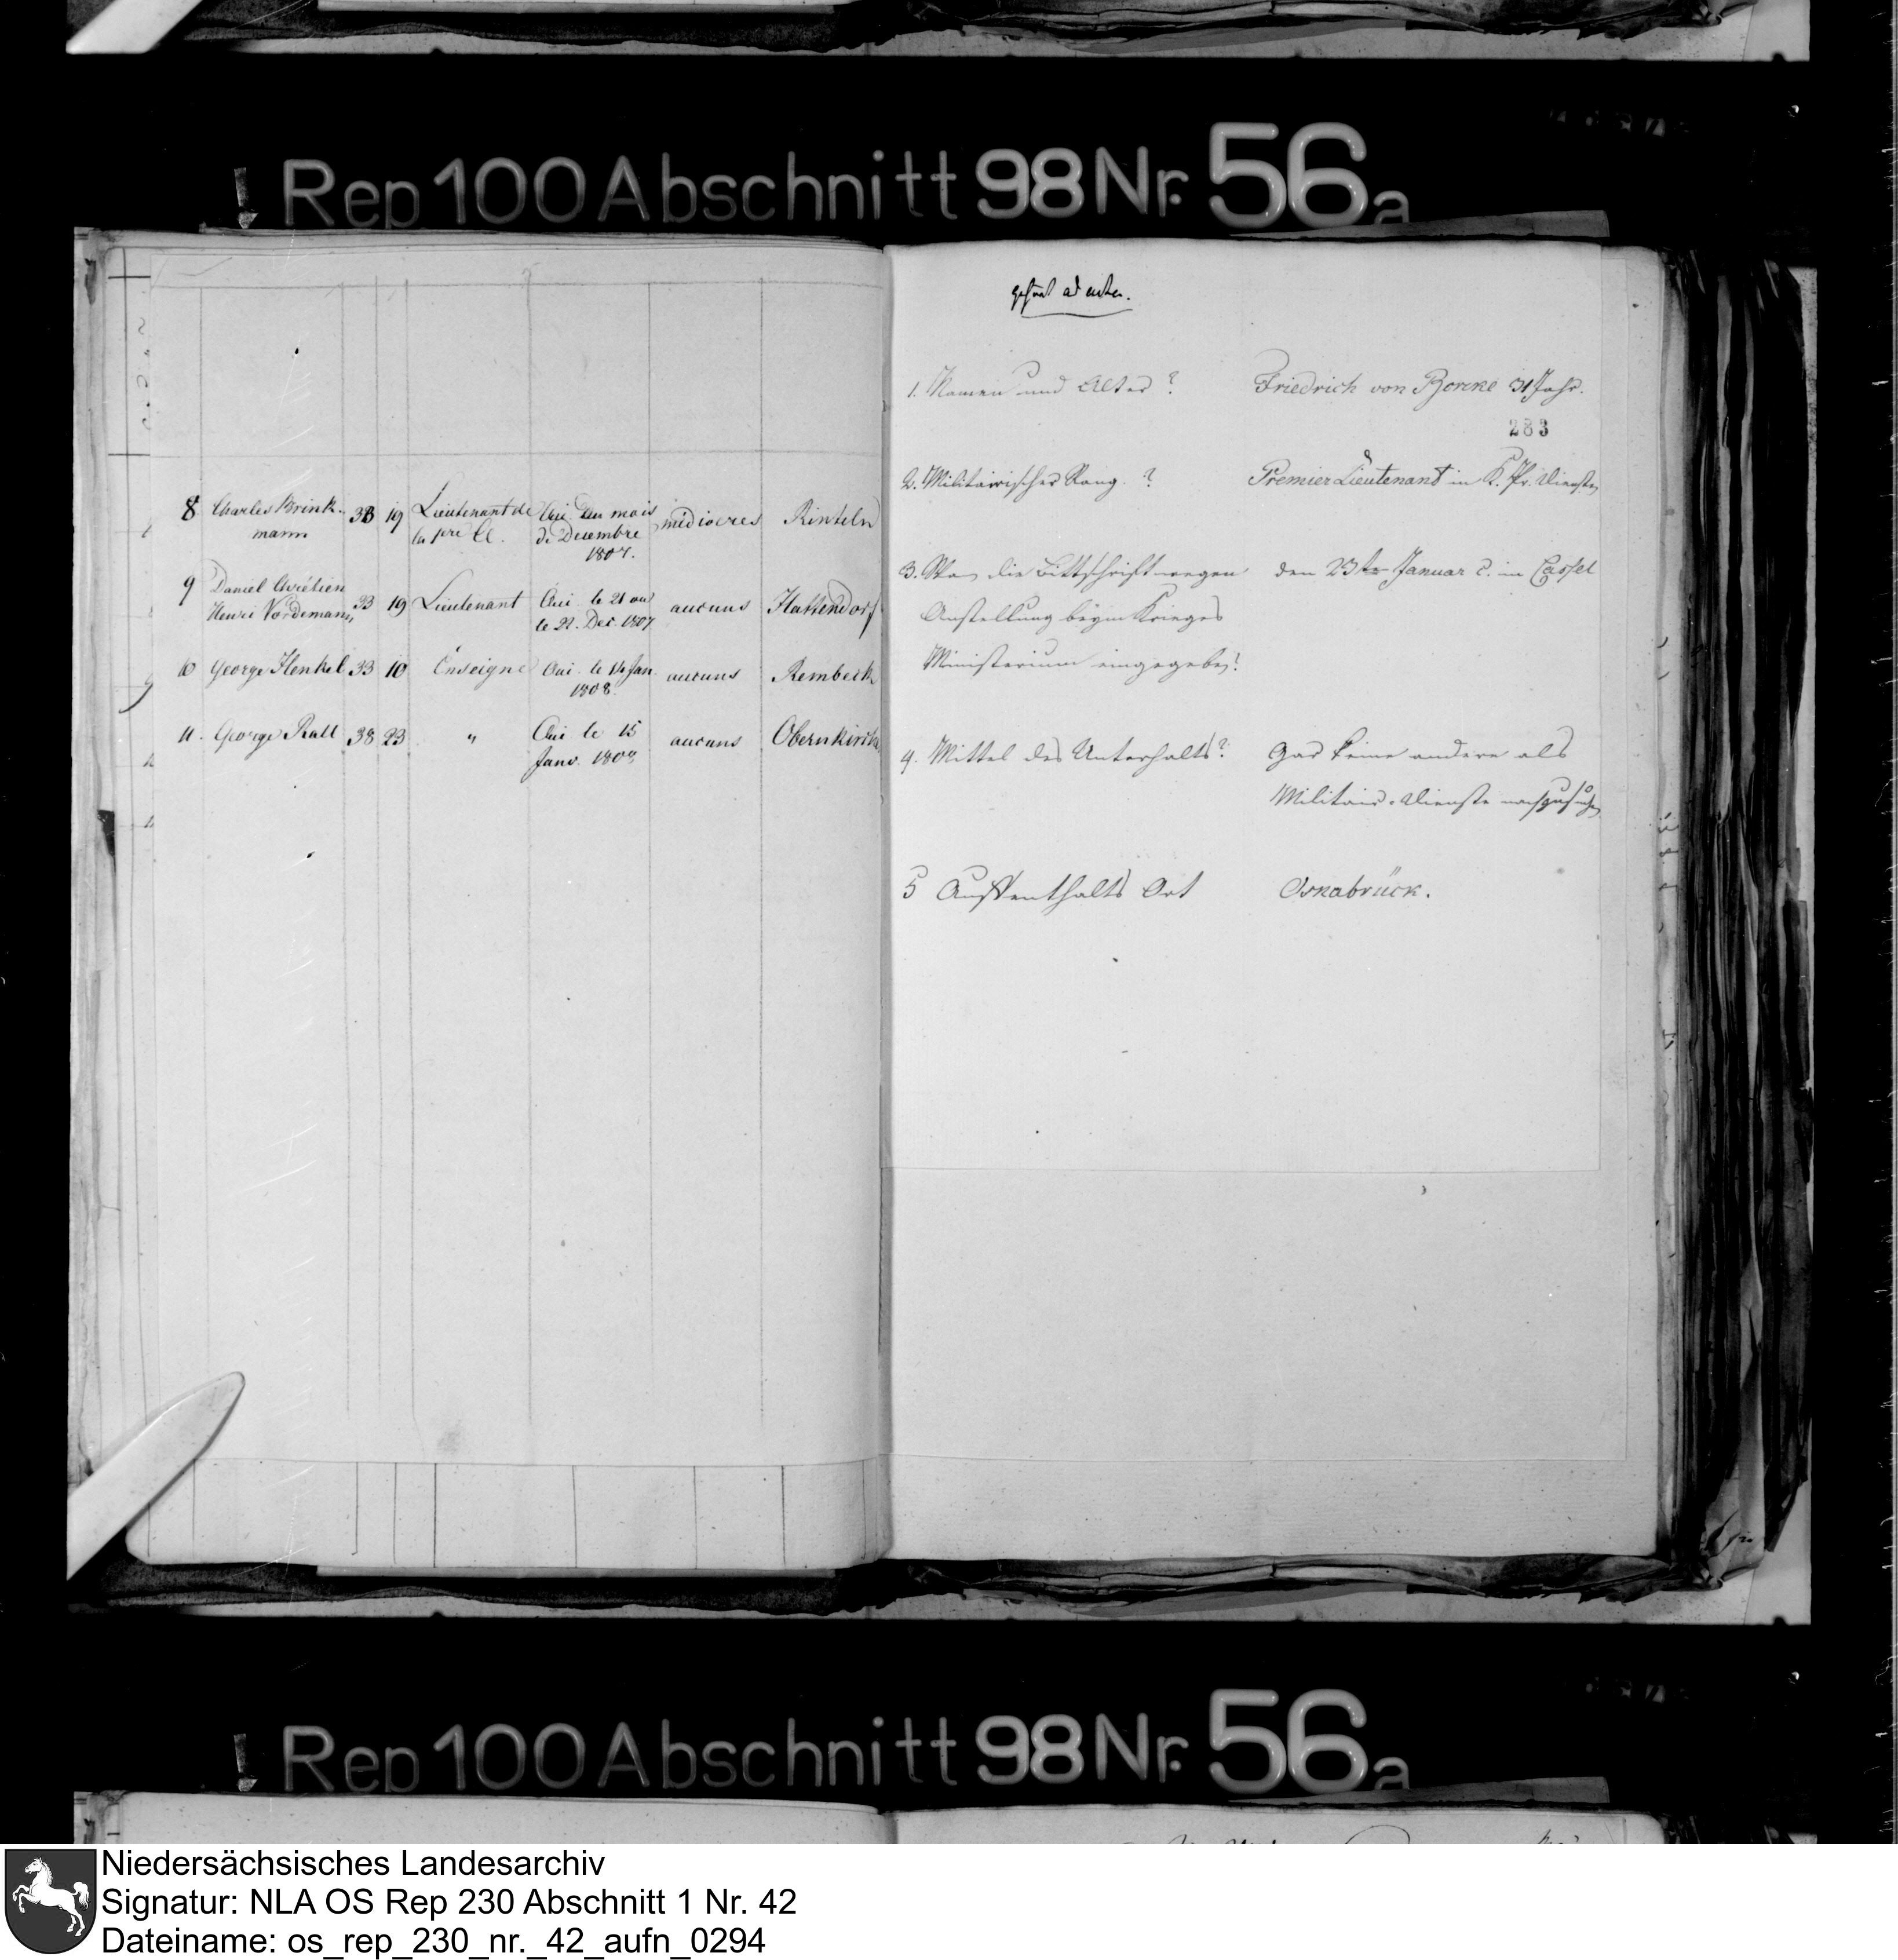 Rep 100 Abschnitt 98 Nr. 56a
8. Charles Brink-
mann
38 19 Lieutenant de
la 1re Cl.
Oui. Au mois
de Decembre
1807.
médiocres Rinteln
9 Daniel Chrétien
Henri Vordemann, 33 19 Lieutenant
Oui le 21 ou
le 22. Dec. 1807
aucuns Hattendorf
10 George Henkel 33 10 Enseigne
Oui le 14 Jan
1808.
aucuns Rembeck
11. George Rall 38 23 "
Oui le 15
Janv. 1808
aucuns Obernkirch
1. Namen und Alter? Friedrich von Borcke 31 Jahr.
283
2. Militairischer Rang.? Premier Lieutenant in K. Pr. Dienste
3. die Bittschrift wegen den 23ten Januar in Cassel
Anstellung beym Krieges
Ministerium eingegeben?
4. Mittel des Unterhalts? Gar keine andere als
Militair-Dienste nachzusuchen
5 Auffenthalts Ort Osnabrück.
Rep 100 Abschnitt 98 Nr. 56a
Niedersächsisches Landesarchiv
Signatur: NLA OS Rep 230 Abschnitt 1 Nr. 42
Dateiname: os_rep_230_nr._42_aufn_0294